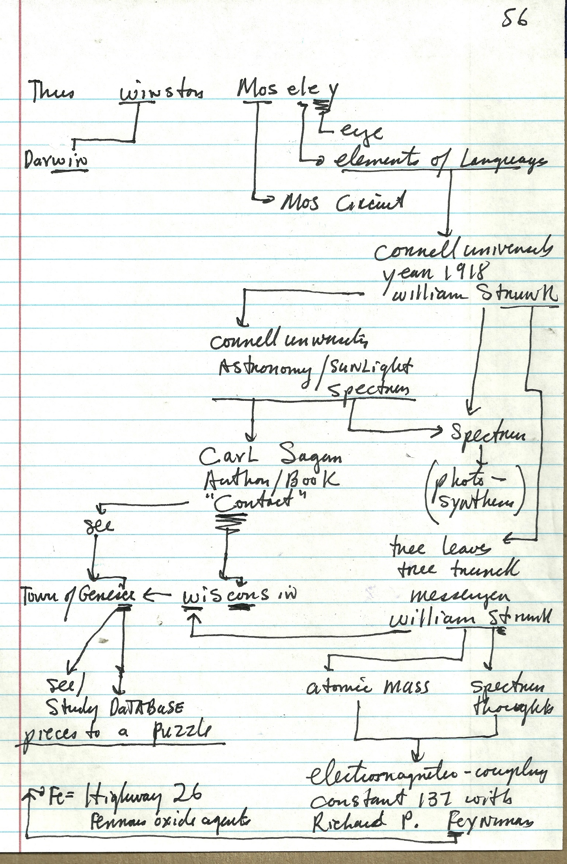 56
Thus winston Moseley
eye
Darwin elements of Language
Mos Circuit
Cornell university
year 1918
william Strunk
Cornell university
Astronomy/SunLight
spectrum
Spectrum
Carl Sagan
Author/Book
"Contact"
(photo-
synthesis)
see
tree leaves
tree trunck
Town of Genesee ← wisconsin messenger
william Strunk
see/
Study DATABASE
pieces to a puzzle
atomic mass spectrum
thoughts
electromagnetic-coupling
Fe= Highway 26 constant 137 with
Ferrous oxide agents Richard P. Feynman